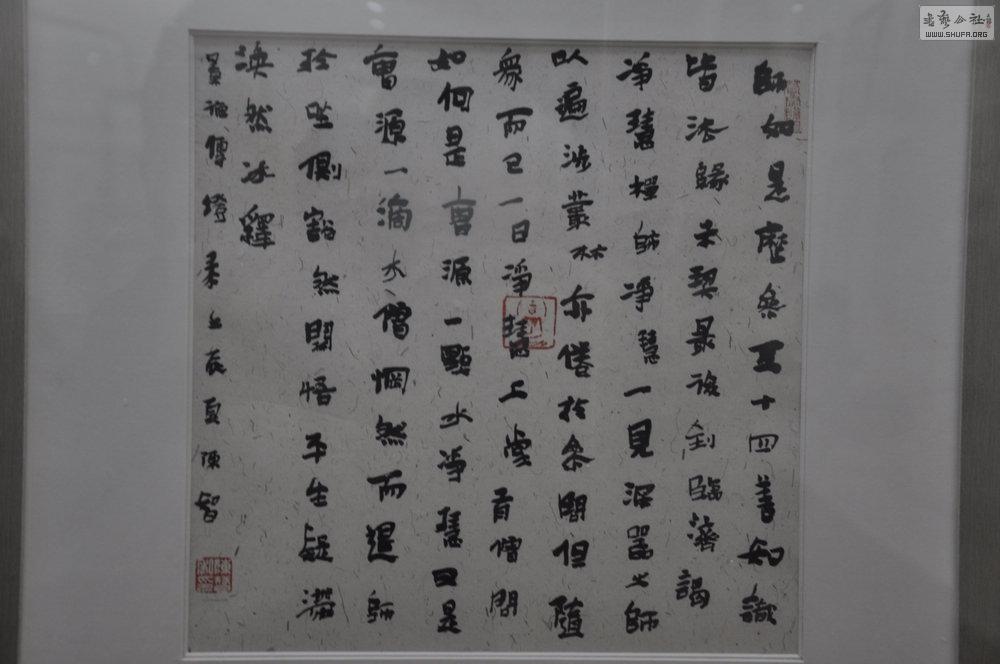 師如是歷參五十四善知識
皆法緣未契最後到臨濟謁
淨慧禪師淨慧一見深器之師
以遍涉叢林亦倦於參問但隨
眾而已一日淨慧上堂有僧問
如何是曹源一滴水淨慧曰是
曹源一滴水僧惘然而退師
於坐側豁然開悟平生疑滯
渙然冰釋
景德傳燈錄 丘辰夏陳智
書藝公社
WWW.SHUFA.ORG